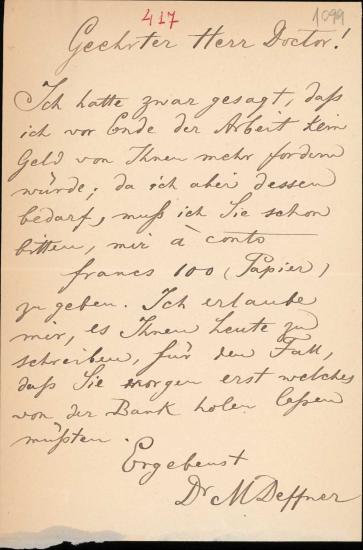 417
1099
Geehrter Herr Doctor!
Ich hatte zwar gesagt, daß
ich vor Ende der Arbeit kein
Geld von Ihnen mehr fordern
würde; da ich aber dessen
bedarf, muß ich Sie schon
bitten, mir à conto
francs 100 (Papier)
zu geben. Ich erlaube
mir, es Ihnen heute zu
schreiben, für den Fall,
daß Sie morgen erst welches
von der Bank holen laßen
müßten.
Ergebenst
Dr MDeffner